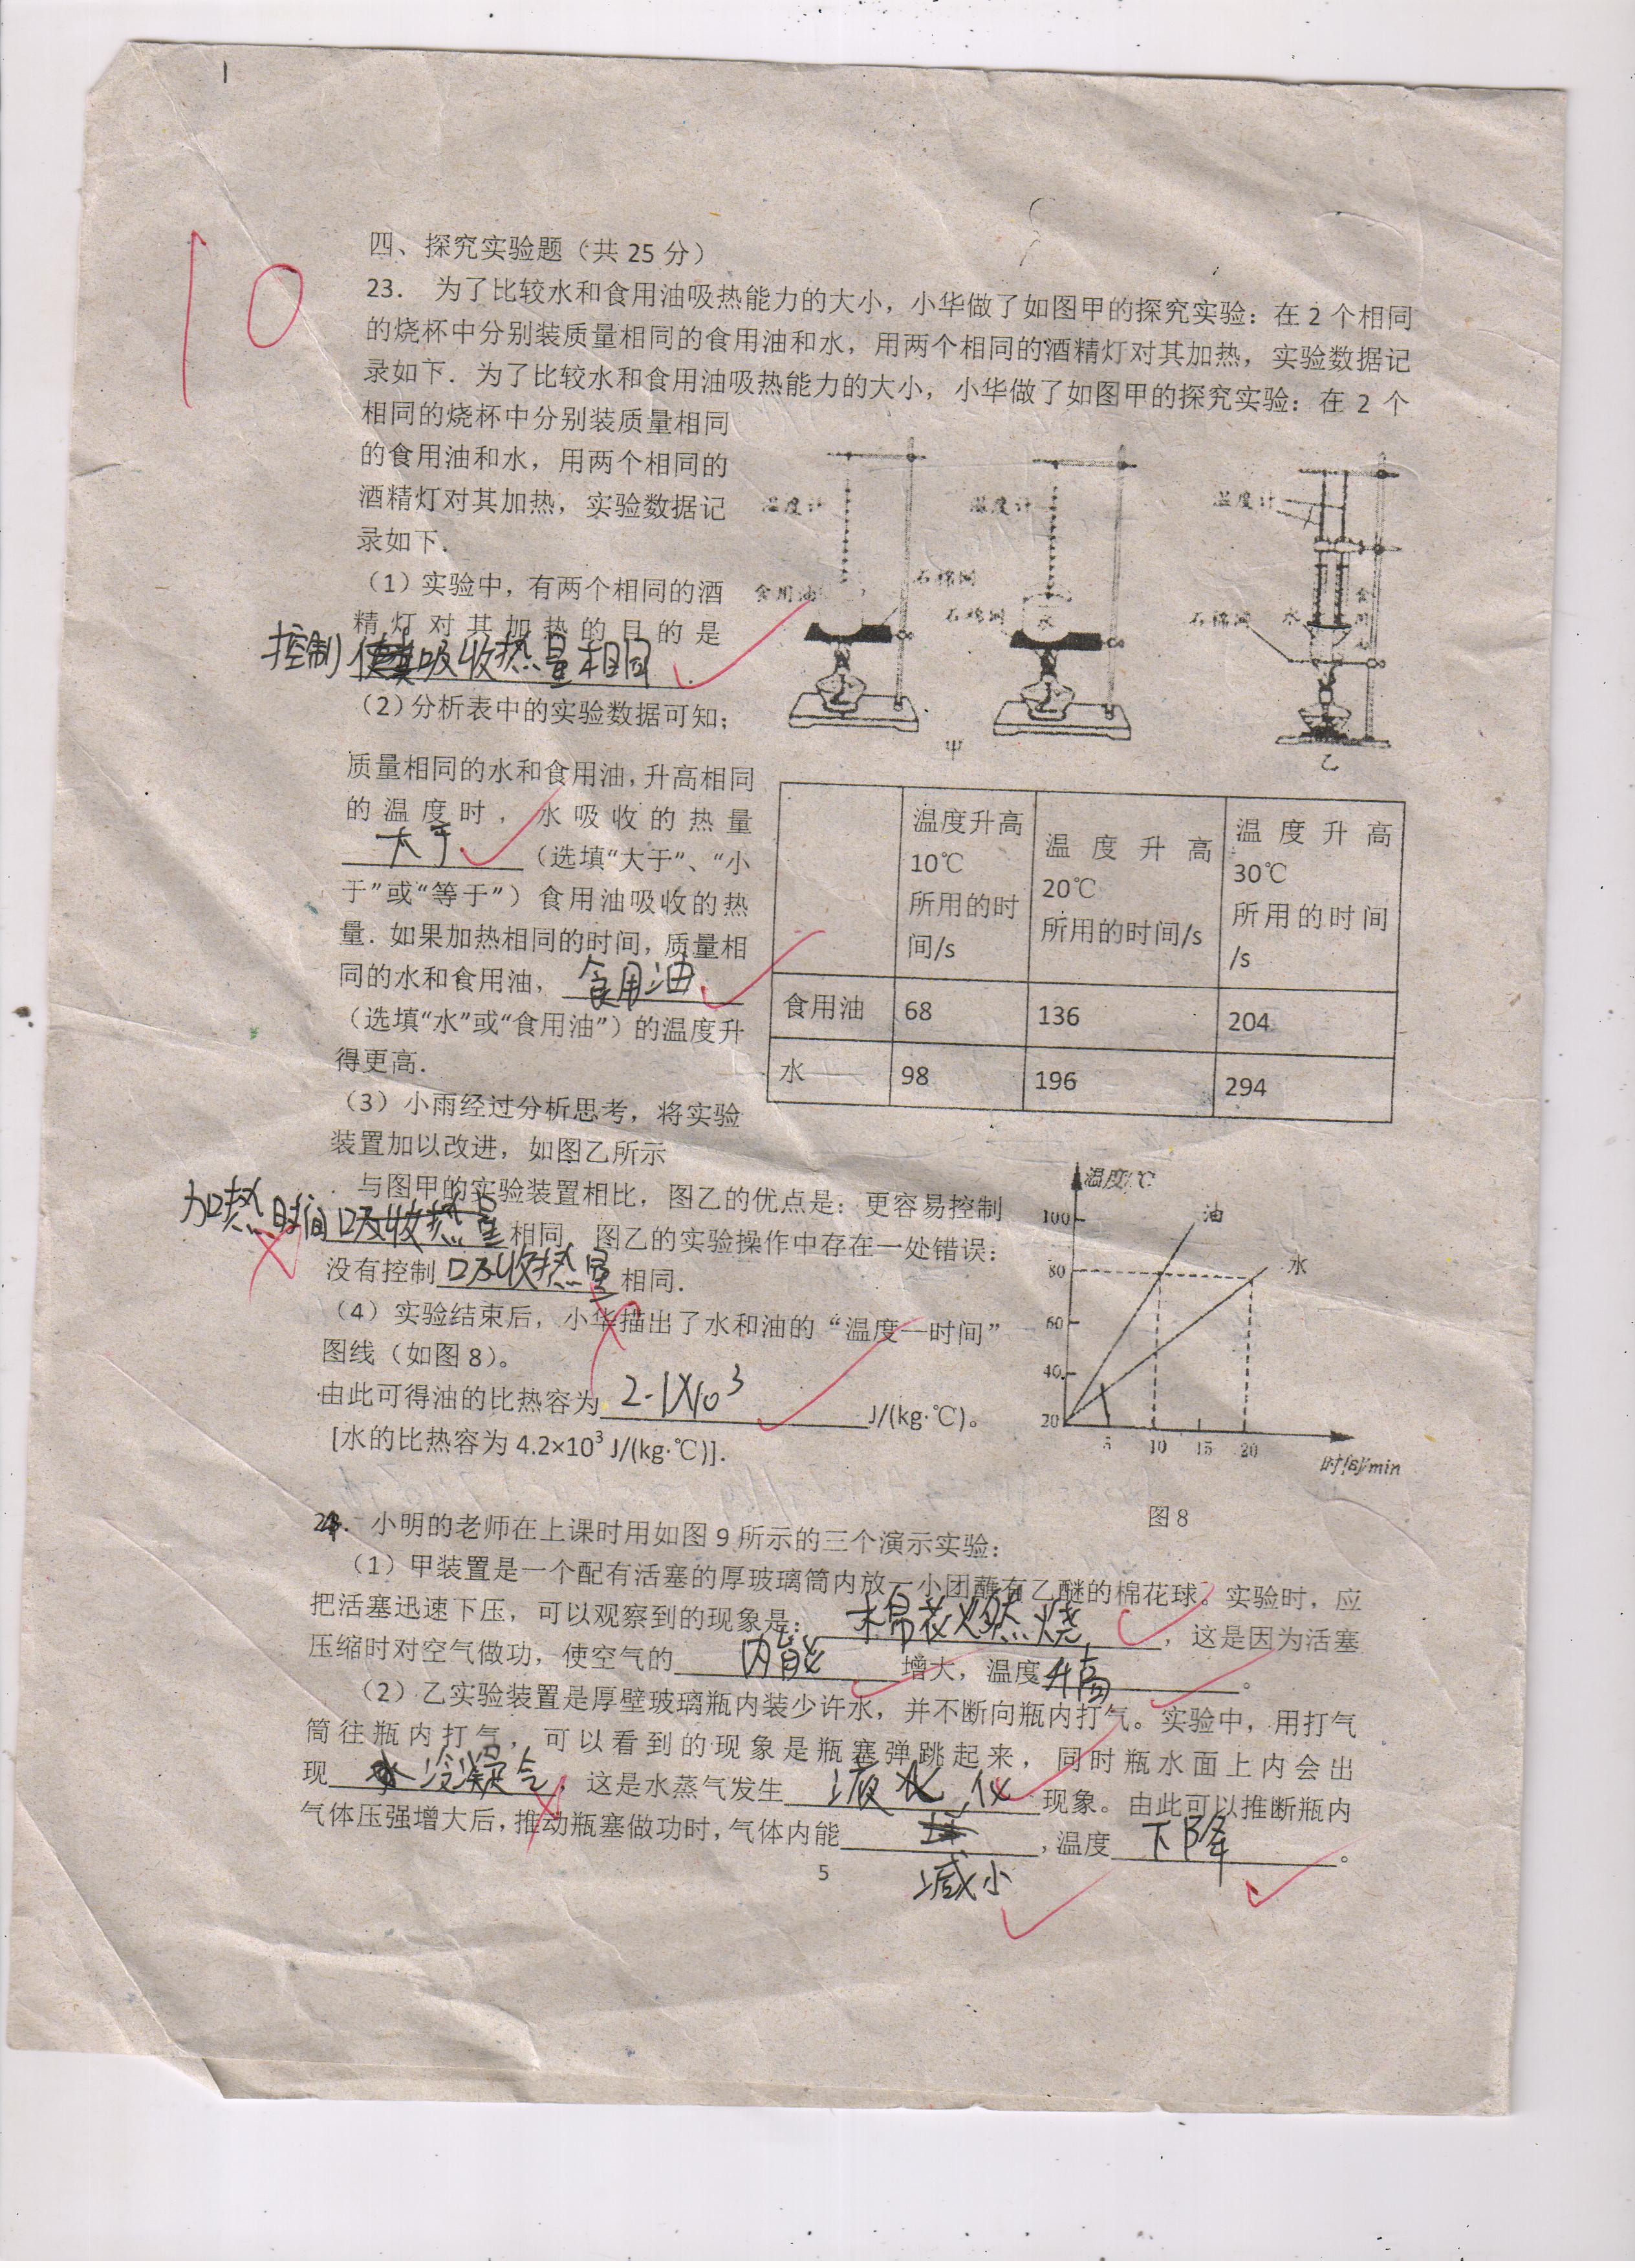 1
10
四、探究实验题（共 25 分）
23． 为了比较水和食用油吸热能力的大小，小华做了如图甲的探究实验：在 2 个相同
的烧杯中分别装质量相同的食用油和水，用两个相同的酒精灯对其加热，实验数据记
录如下．为了比较水和食用油吸热能力的大小，小华做了如图甲的探究实验：在 2 个
相同的烧杯中分别装质量相同
的食用油和水，用两个相同的
酒精灯对其加热，实验数据记
录如下．
温度计
温度计
温度计
食用油
石棉网
石棉网
水
石棉网
水
甲
乙
（1）实验中，有两个相同的酒
精灯对其加热的目的是
控制 吸收热量相同 ．
（2）分析表中的实验数据可知；
质量相同的水和食用油，升高相同
的温度时，水吸收的热量
大于（选填“大于”、“小
于”或“等于”）食用油吸收的热
量．如果加热相同的时间，质量相
同的水和食用油，食用油
（选填“水”或“食用油”）的温度升
得更高．
温度升高
10℃
所用的时
间/s
温度升高
20℃
所用的时间/s
温度升高
30℃
所用的时间
/s
食用油 68 136 204
水 98 196 294
（3）小雨经过分析思考，将实验
装置加以改进，如图乙所示
与图甲的实验装置相比，图乙的优点是：更容易控制
加热时间吸收热量相同．图乙的实验操作中存在一处错误：
没有控制吸收热量相同．
（4）实验结束后，小华描出了水和油的“温度—时间”
图线（如图 8）。
由此可得油的比热容为2.1×10³J/(kg·℃)。
[水的比热容为 4.2×10³ J/(kg·℃)]．
温度/℃
100
油
80
水
60
40
20
5 10 15 20
时间/min
图 8
24． 小明的老师在上课时用如图 9 所示的三个演示实验：
（1）甲装置是一个配有活塞的厚玻璃筒内放一小团蘸有乙醚的棉花球。实验时，应
把活塞迅速下压，可以观察到的现象是：棉花燃烧，这是因为活塞
压缩时对空气做功，使空气的内能增大，温度升高。
（2）乙实验装置是厚壁玻璃瓶内装少许水，并不断向瓶内打气。实验中，用打气
筒往瓶内打气，可以看到的现象是瓶塞弹跳起来，同时瓶水面上内会出
现冷凝气，这是水蒸气发生液化现象。由此可以推断瓶内
气体压强增大后，推动瓶塞做功时，气体内能减小，温度下降。
5